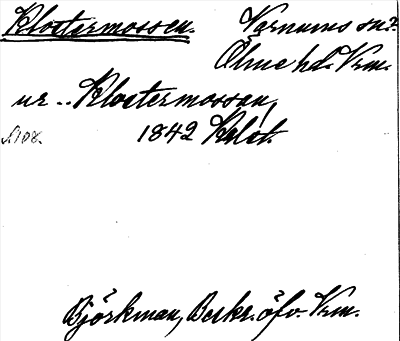 Klostermossen. Varnums sn?.
Ölme hd. Vrm.
ur .. Klostermossan,
s. 108. 1842 Hrlst.
Björkman, Beskr. öfv. Vrm.